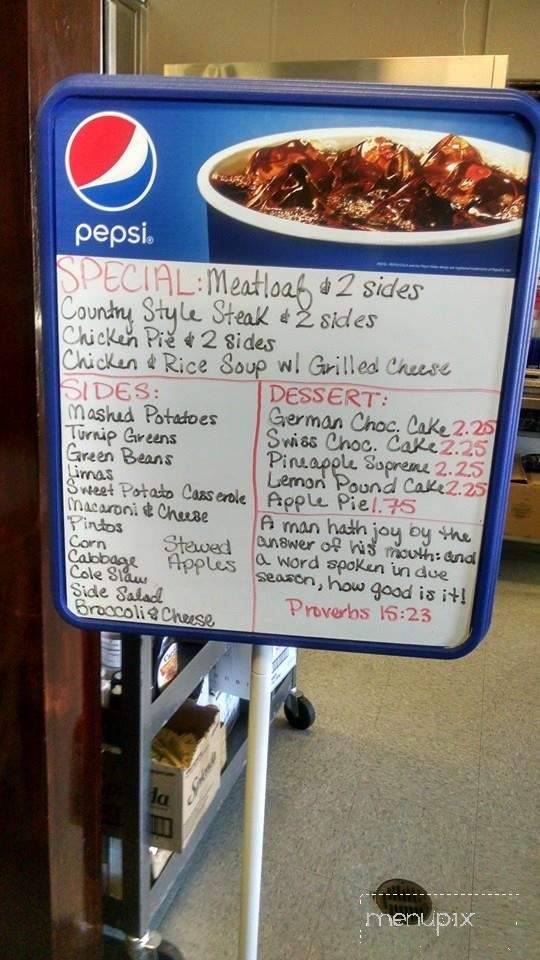 pepsi
SPECIAL: Meatloaf & 2 sides
Country Style Steak & 2 sides
Chicken Pie & 2 sides
Chicken & Rice Soup w/ Grilled Cheese
SIDES:
Mashed Potatoes
Turnip Greens
Green Beans
Limas
Sweet Potato Casserole
Macaroni & Cheese
Pintos
Corn
Cabbage
Cole Slaw
Side Salad
Broccoli & Cheese
Stewed
Apples
DESSERT:
German Choc. Cake 2.25
Swiss Choc. Cake 2.25
Pineapple Supreme 2.25
Lemon Pound Cake 2.25
Apple Pie 1.75
A man hath joy by the
answer of his mouth: and
a word spoken in due
season, how good is it!
Proverbs 15:23
Splenda
menupix